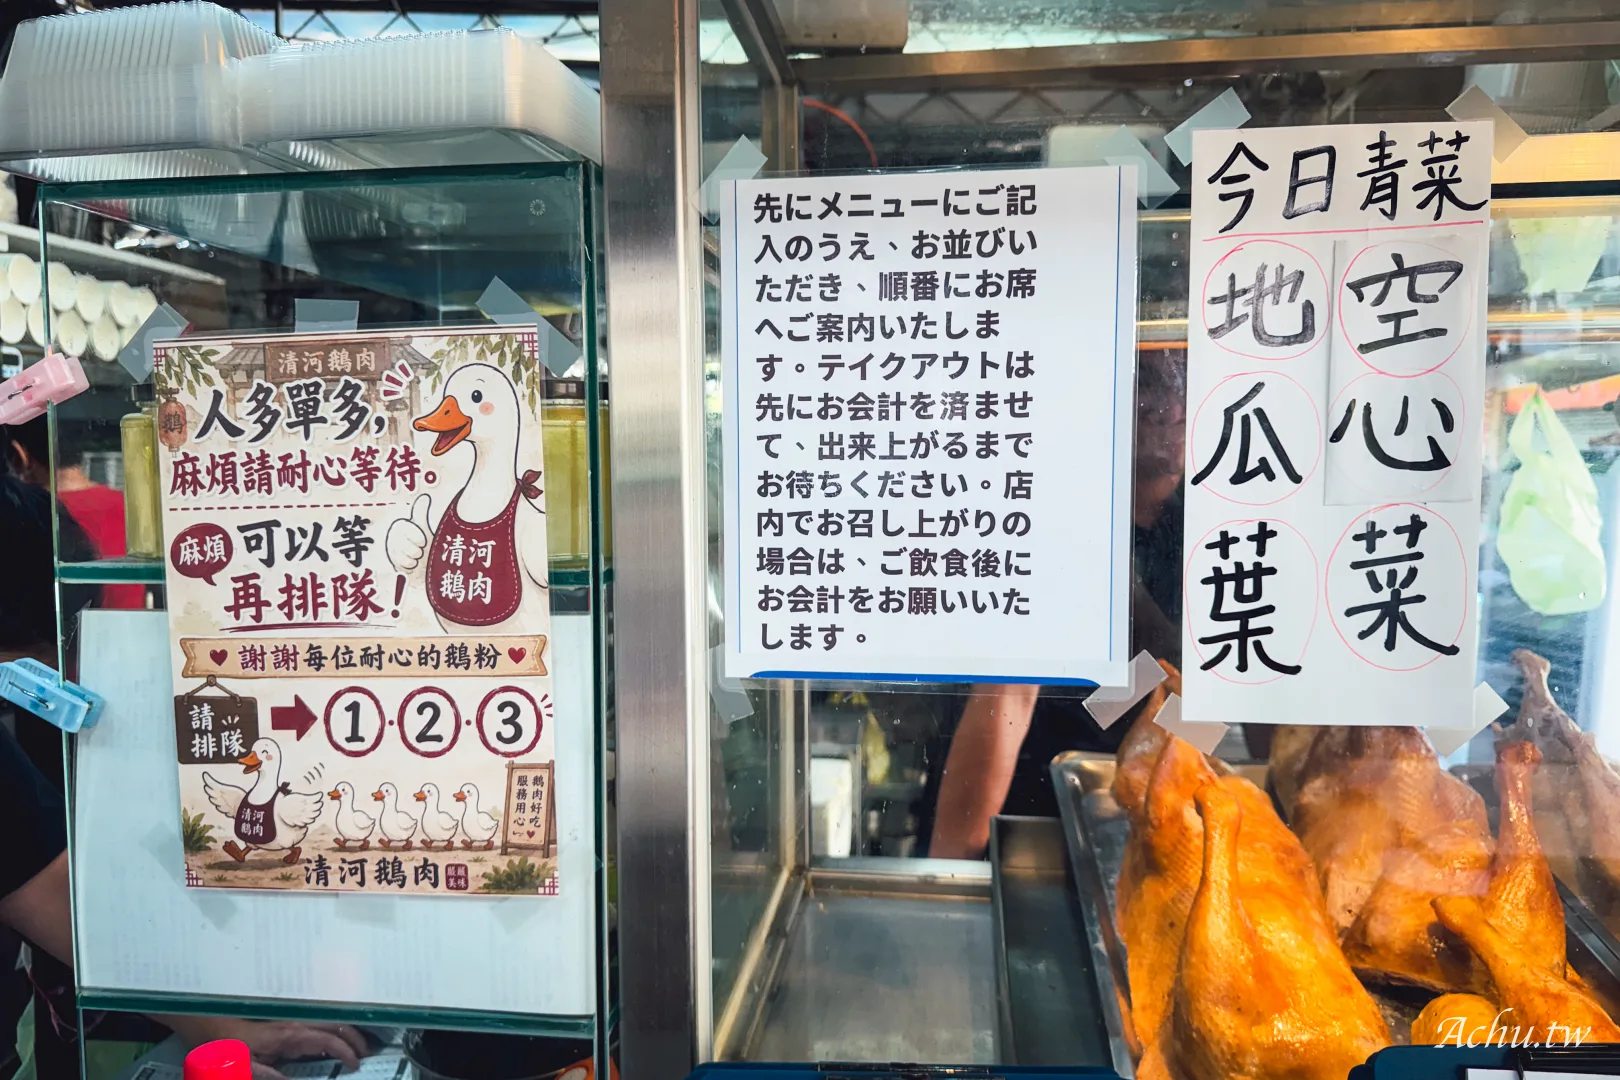 清河鵝肉
鵝
人多單多,
麻煩請耐心等待。
麻煩
可以等
再排隊!
清河
鵝肉
謝謝每位耐心的鵝粉
請
排隊
1·2·3
清河
鵝肉
鵝肉好吃
服務用心
清河鵝肉
先にメニューにご記
入のうえ、お並びい
ただき、順番にお席
へご案内いたしま
す。テイクアウトは
先にお会計を済ませ
て、出来上がるまで
お待ちください。店
内でお召し上がりの
場合は、ご飲食後に
お会計をお願いいた
します。
今日青菜
地瓜葉
空心菜
Achu.tw